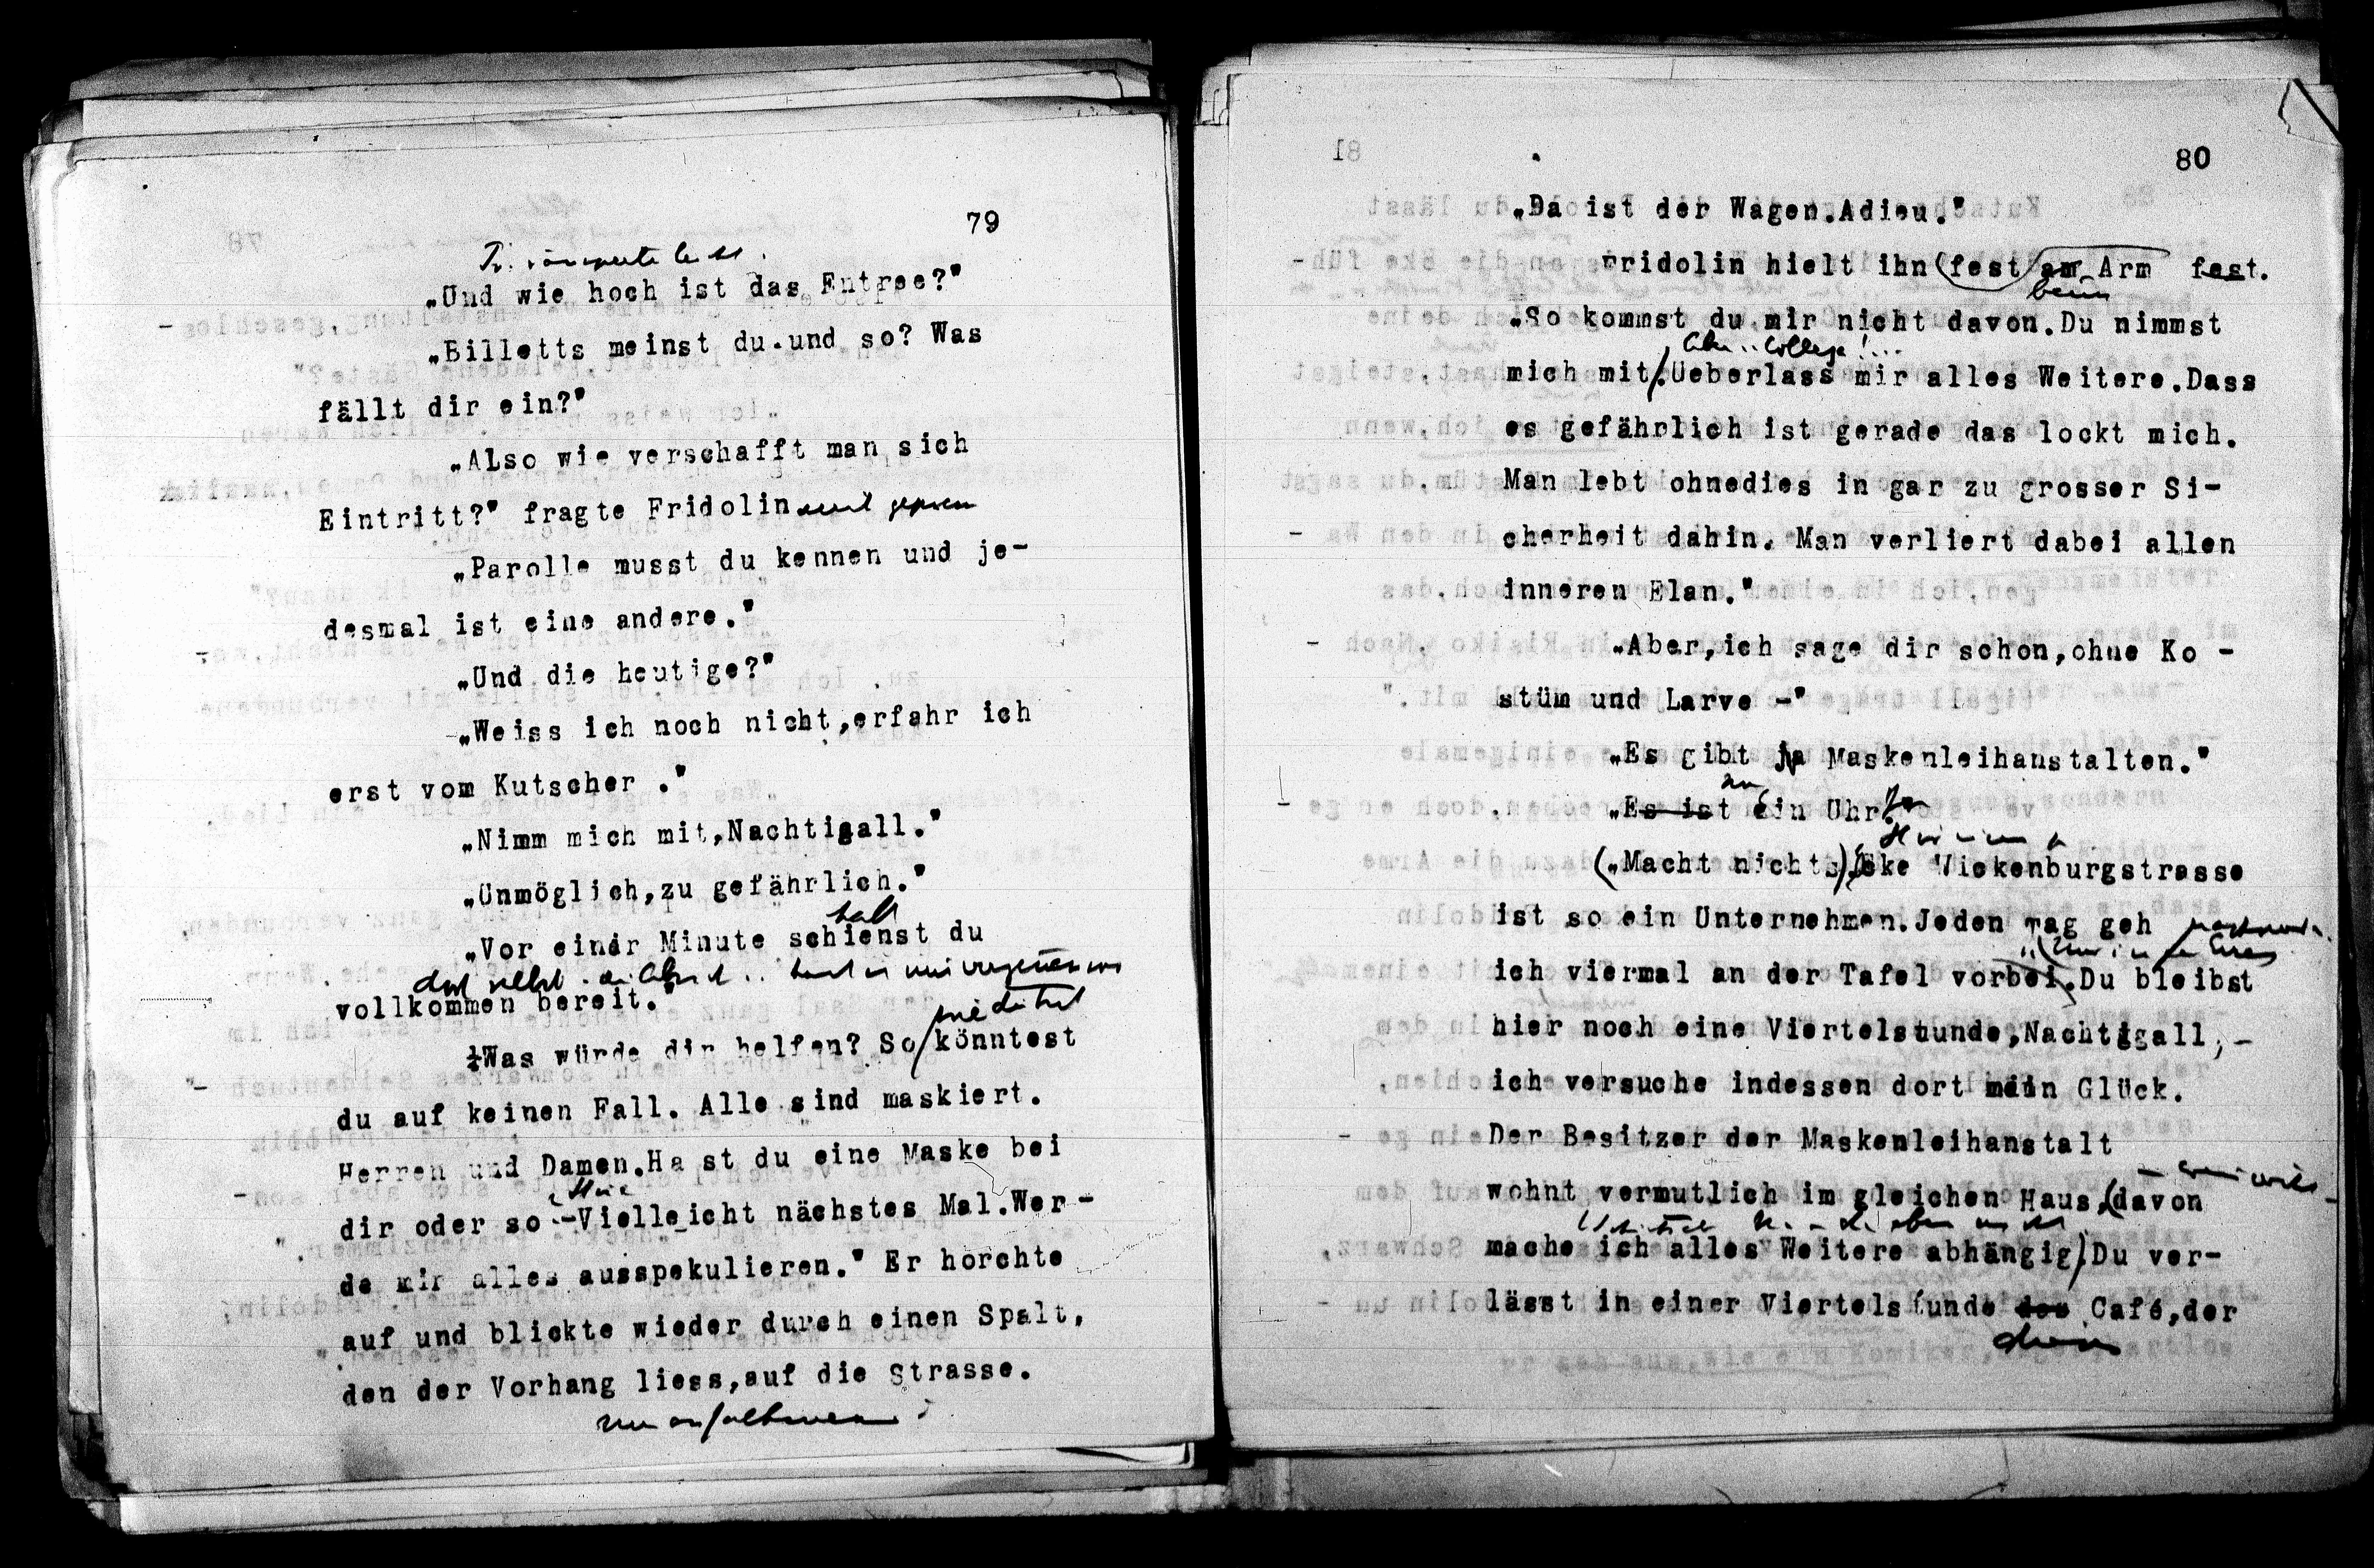 79
„Und wie hoch ist das Entree?"
„Billetts meinst du.und so? Was
fällt dir ein?"
„Also wie verschafft man sich
Eintritt?" fragte Fridolin
„Parolle musst du kennen und je-
desmal ist eine andere."
„Und die heutige?"
„Weiss ich noch nicht,erfahr ich
erst vom Kutscher ."
„Nimm mich mit,Nachtigall."
„Unmöglich,zu gefährlich."
halt
„Vor einer Minute schienst du
vollkommen bereit."
Was würde dir helfen? So könntest
du auf keinen Fall. Alle sind maskiert.
Herren und Damen.Ha st du eine Maske bei
dir oder so -Vielleicht nächstes Mal.Wer-
de mir alles ausspekulieren." Er horchte
auf und blickte wieder durch einen Spalt,
den der Vorhang liess,auf die Strasse.
80
„Da ist der Wagen.Adieu."
Fridolin hielt ihn (fest am Arm fest.
beim
„So kommst du mir nicht davon.Du nimmst
College!...
mich mit.Ueberlass mir alles Weitere.Dass
es gefährlich ist gerade das lockt mich.
Man lebt ohnedies in gar zu grosser Si-
cherheit dahin. Man verliert dabei allen
inneren Elan."
„Aber,ich sage dir schon,ohne Ko -
stüm und Larve -"
„Es gibt ja Maskenleihanstalten."
„Es ist ein Uhr
(„Macht nichts) Eke Wickenburgstrasse
ist so ein Unternehmen.Jeden Tag geh
ich viermal an der Tafel vorbei.Du bleibst
hier noch eine Viertelstunde,Nachtigall,-
ich versuche indessen dort mein Glück.
Der Besitzer der Maskenleihanstalt
wohnt vermutlich im gleichen Haus,(davon
mache ich alles Weitere abhängig).Du ver-
lässt in einer Viertelstunde das Café,der